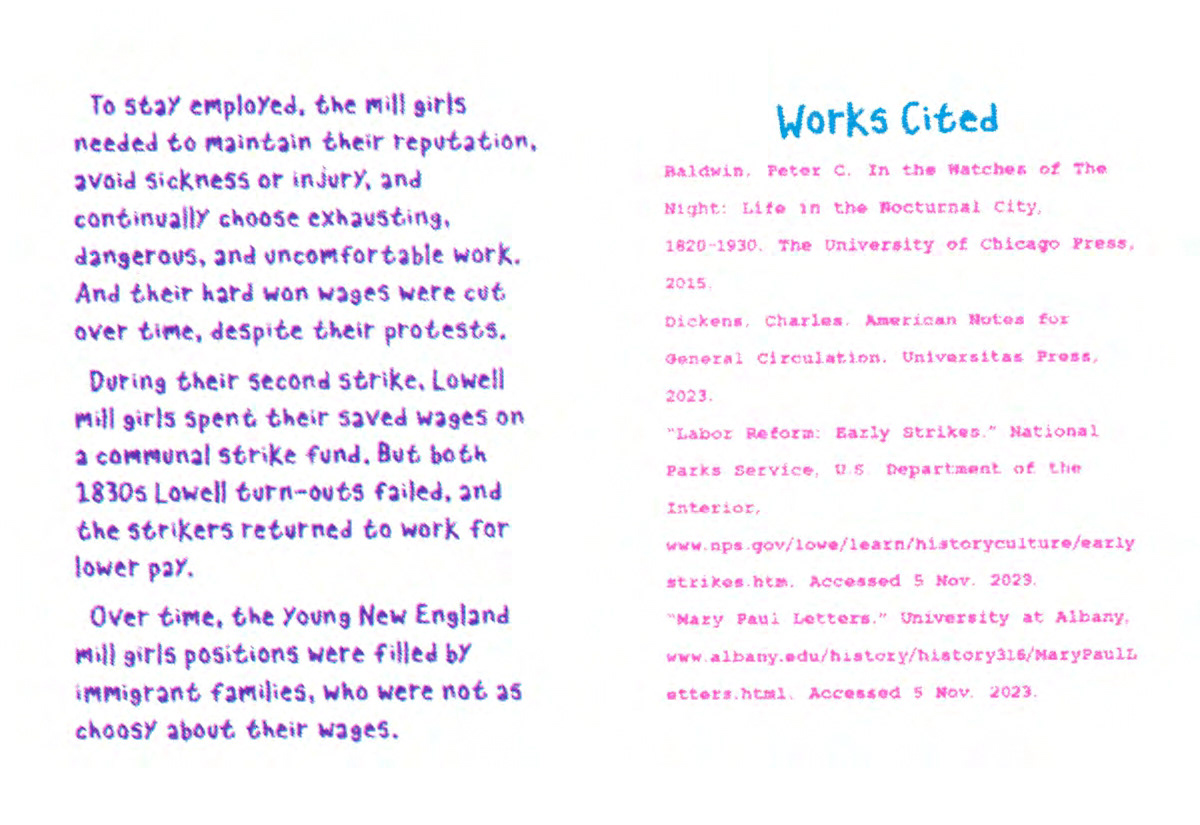 To stay employed, the mill girls
needed to maintain their reputation,
avoid sickness or injury, and
continually choose exhausting,
dangerous, and uncomfortable work.
And their hard won wages were cut
over time, despite their protests.
During their second strike, Lowell
mill girls spent their saved wages on
a communal strike fund. But both
1830s Lowell turn-outs failed, and
the strikers returned to work for
lower pay.
Over time, the young New England
mill girls positions were filled by
immigrant families, who were not as
choosy about their wages.
Works Cited
Baldwin, Peter C. In the Watches of The
Night: Life in the Nocturnal City,
1820-1930. The University of Chicago Press,
2015.
Dickens, Charles. American Notes for
General Circulation. Universitas Press,
2023.
"Labor Reform: Early Strikes." National
Parks Service, U.S. Department of the
Interior,
www.nps.gov/lowe/learn/historyculture/early
strikes.htm. Accessed 5 Nov. 2023.
"Mary Paul Letters." University at Albany,
www.albany.edu/history/history316/MaryPaulL
etters.html. Accessed 5 Nov. 2023.